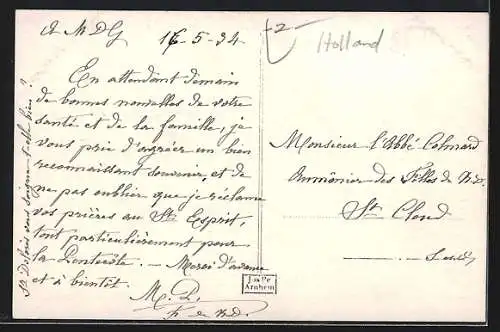 A M D G 16-5-34
En attendant demain
de bonnes nouvelles de votre
santé et de la famille, je
vous prie d'agréer un bien
reconnaissant souvenir, et de
ne pas oublier que je réclame
vos prières au St Esprit,
tout particulièrement pour
la Pentecôte. — Merci d'avance
et à bientôt.
M. P.
F. de N.D.
-2-
Holland
Monsieur l'Abbé Colmard
Aumônier des Filles de N.D.
St Cloud
S. et O.
vous soigne-t-elle bien ?
Arnhem